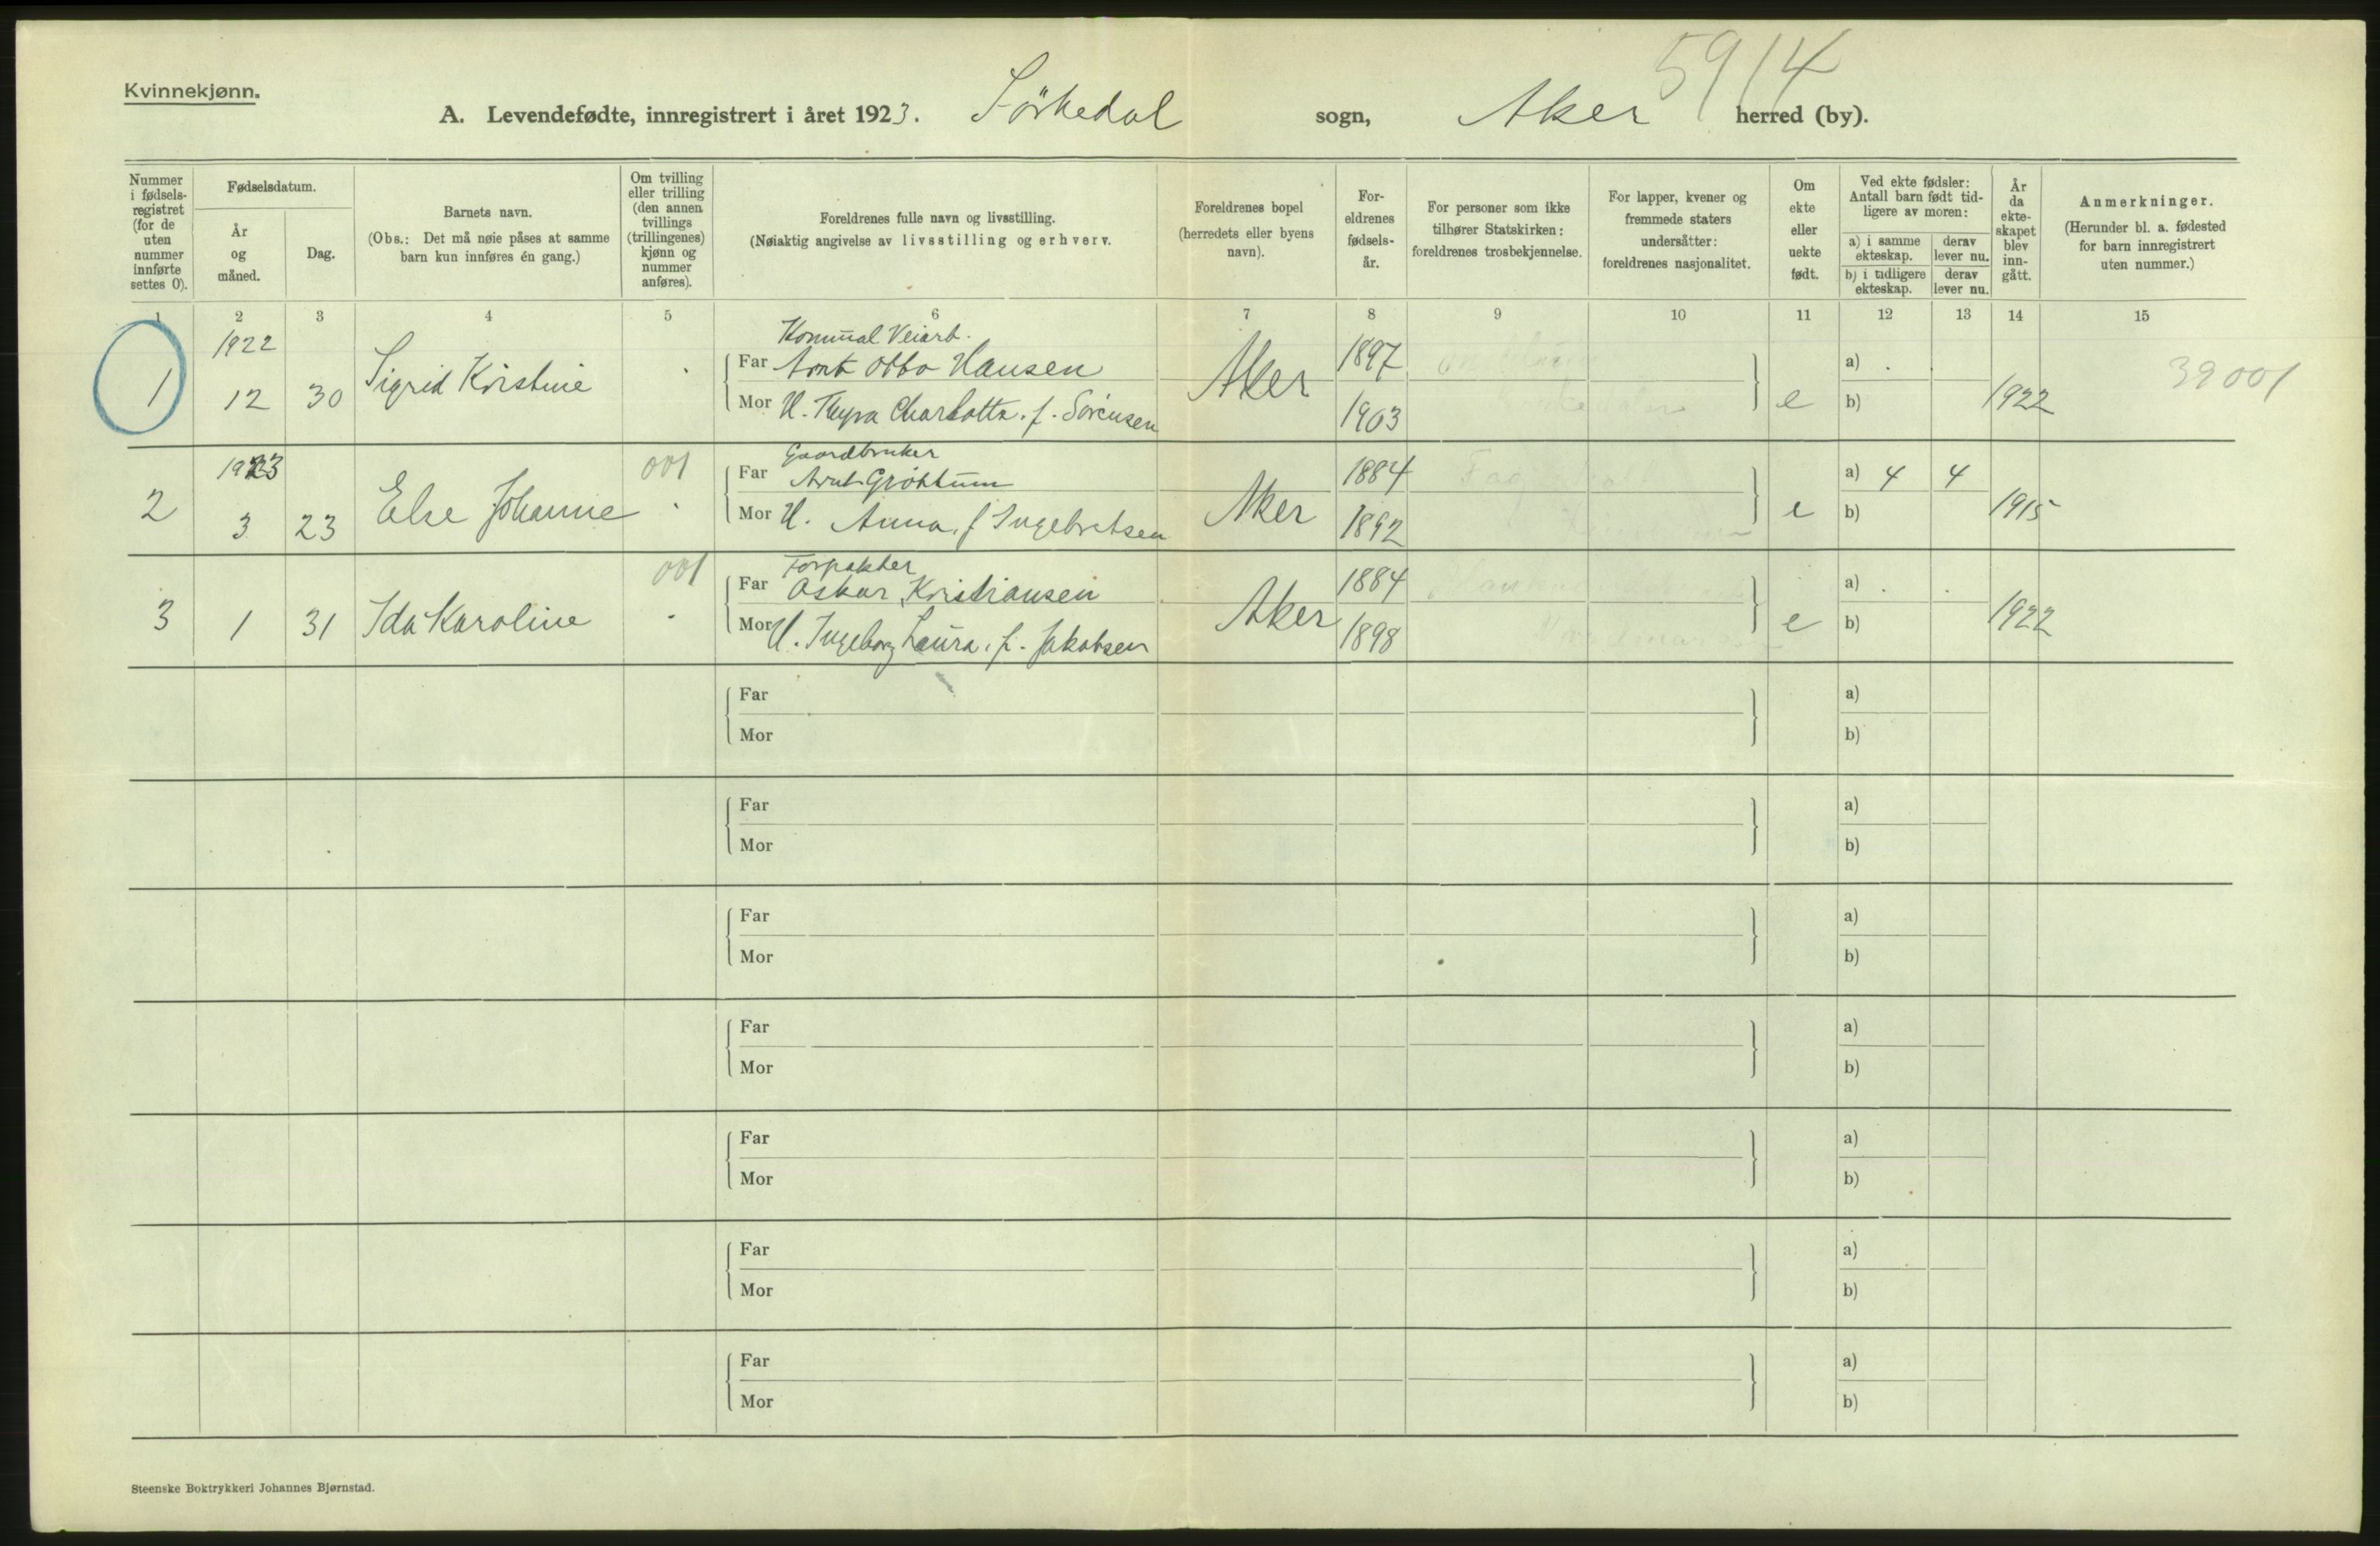 5914
Kvinnekjønn.
A. Levendefødte, innregistrert i året 1923. Sörkedal sogn, Aker herred (by).
Nummer i fødsels-registret (for de uten nummer innførte settes 0).
Fødselsdatum.
År og måned.
Dag.
Barnets navn.
(Obs.: Det må nøie påses at samme barn kun innføres én gang.)
Om tvilling eller trilling (den annen tvillings (trillingenes) kjønn og nummer anføres).
Foreldrenes fulle navn og livsstilling.
(Nøiaktig angivelse av livsstilling og erhverv.
Foreldrenes bopel (herredets eller byens navn).
For-eldrenes fødsels-år.
For personer som ikke tilhører Statskirken: foreldrenes trosbekjennelse.
For lapper, kvener og fremmede staters undersåtter: foreldrenes nasjonalitet.
Om ekte eller uekte født.
Ved ekte fødsler: Antall barn født tid-ligere av moren:
a) i samme ekteskap.
derav lever nu.
b) i tidligere ekteskap.
derav lever nu.
År da ekte-skapet blev inn-gått.
Anmerkninger.
(Herunder bl. a. fødested for barn innregistrert uten nummer.)
1 2 3 4 5 6 7 8 9 10 11 12 13 14 15
1 1922 12 30 Sigrid Kristine
Kommual Veiarb.
Far Arnt Otto Hansen
Mor H. Thyra Charlotta. f. Sörensen
Aker 1897 1903 e a) . b) 1922 39001
2 1923 3 23 Else Johanne 001
Gaardbruker
Far Arnt Gröttum
Mor H. Anna, f Ingebretsen
Aker 1884 1892 e a) 4 4 b) 1915
3 1 31 Ida Karoline 001
Forpakter
Far Oskar Kristiansen
Mor H. Ingeborg Laura. f. Jakobsen
Aker 1884 1898 e a) . . b) 1922
Far a)
Mor b)
Far a)
Mor b)
Far a)
Mor b)
Far a)
Mor b)
Far a)
Mor b)
Far a)
Mor b)
Far a)
Mor b)
Steenske Boktrykkeri Johannes Bjørnstad.